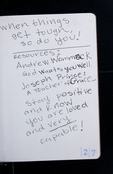 when things
get tough,
so do you!
Resources:
Andrew Wommack
and Wants you Well
Joseph Prince!
A Teacher of Grace
stay positive
and know
you are loved
and very
capable!